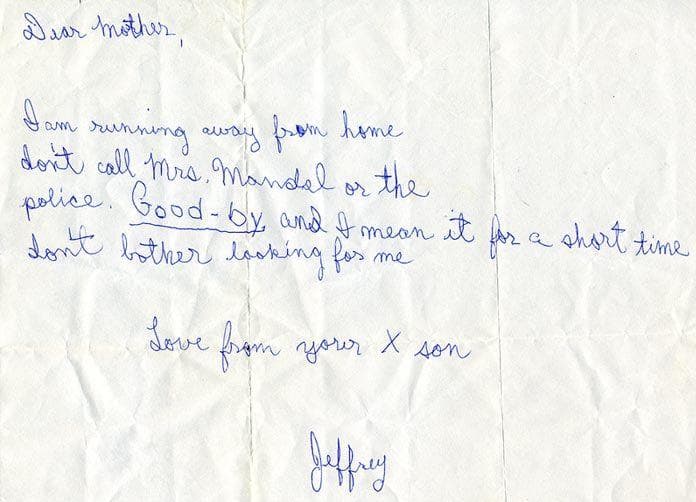 Dear Mother,
I am running away from home
don't call Mrs. Mandel or the
police. Good-by and I mean it for a short time
don't bother looking for me
Love from your X son
Jeffrey